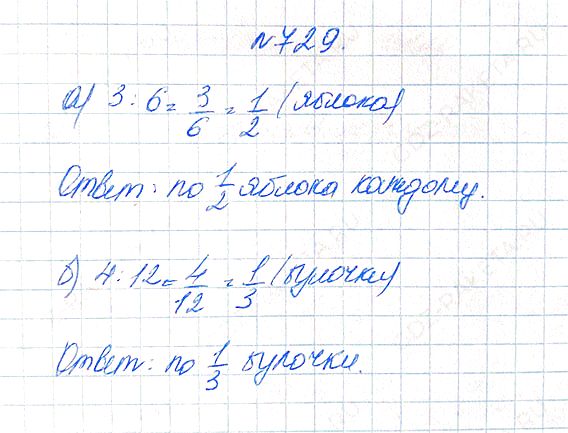 №729.
а) 3 : 6 = 3/6 = 1/2 (яблока)
Ответ: по 1/2 яблока каждому.
б) 4 : 12 = 4/12 = 1/3 (булочки)
Ответ: по 1/3 булочки.